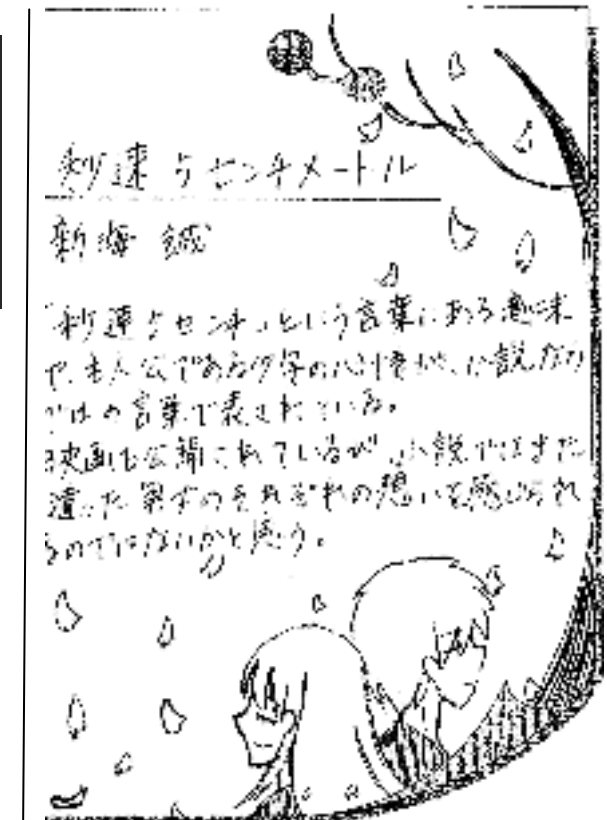 秒速5センチメートル
新海 誠
「秒速5センチ」という言葉にある意味
や、主人公である少年の心情が、小説なら
ではの言葉で表されている。
映画も公開されているが、小説ではまた
違った男女のそれぞれの想いを感じられ
るのではないかと思う。